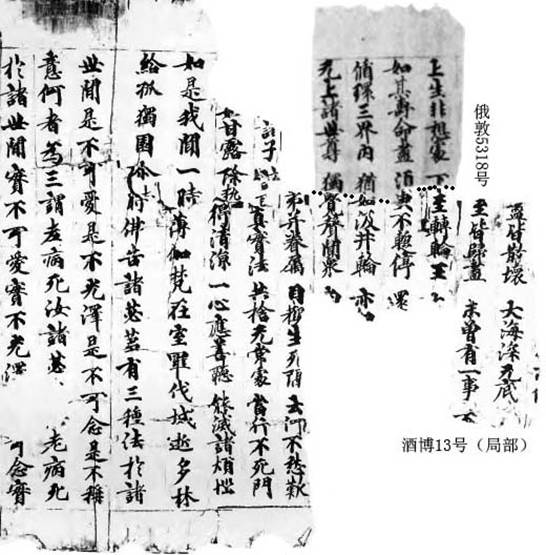 皆散壞 大海深无底
至皆歸盡 未曾有一事 不
上生非想處 下至轉輪王
如其壽命盡 須臾不暫停 還
循環三界內 猶如汲井輪 亦
无上諸世尊 獨覺聲聞衆
子 弟并眷屬 目觀生死隔 云何不愁歎
真實法 共捨无常處 當行不死門
如甘露 除熱得清涼 一心應善聽 能滅諸煩惱
如是我聞一時薄伽梵在室羅伐城逝多林
給孤獨園尒時佛告諸苾芻有三種法於諸
世間是不可愛是不光澤是不可念是不稱
意何者為三謂老病死汝諸苾 老病死
於諸世間實不可愛實不光澤 可念實
俄敦5318号
酒博13号（局部）